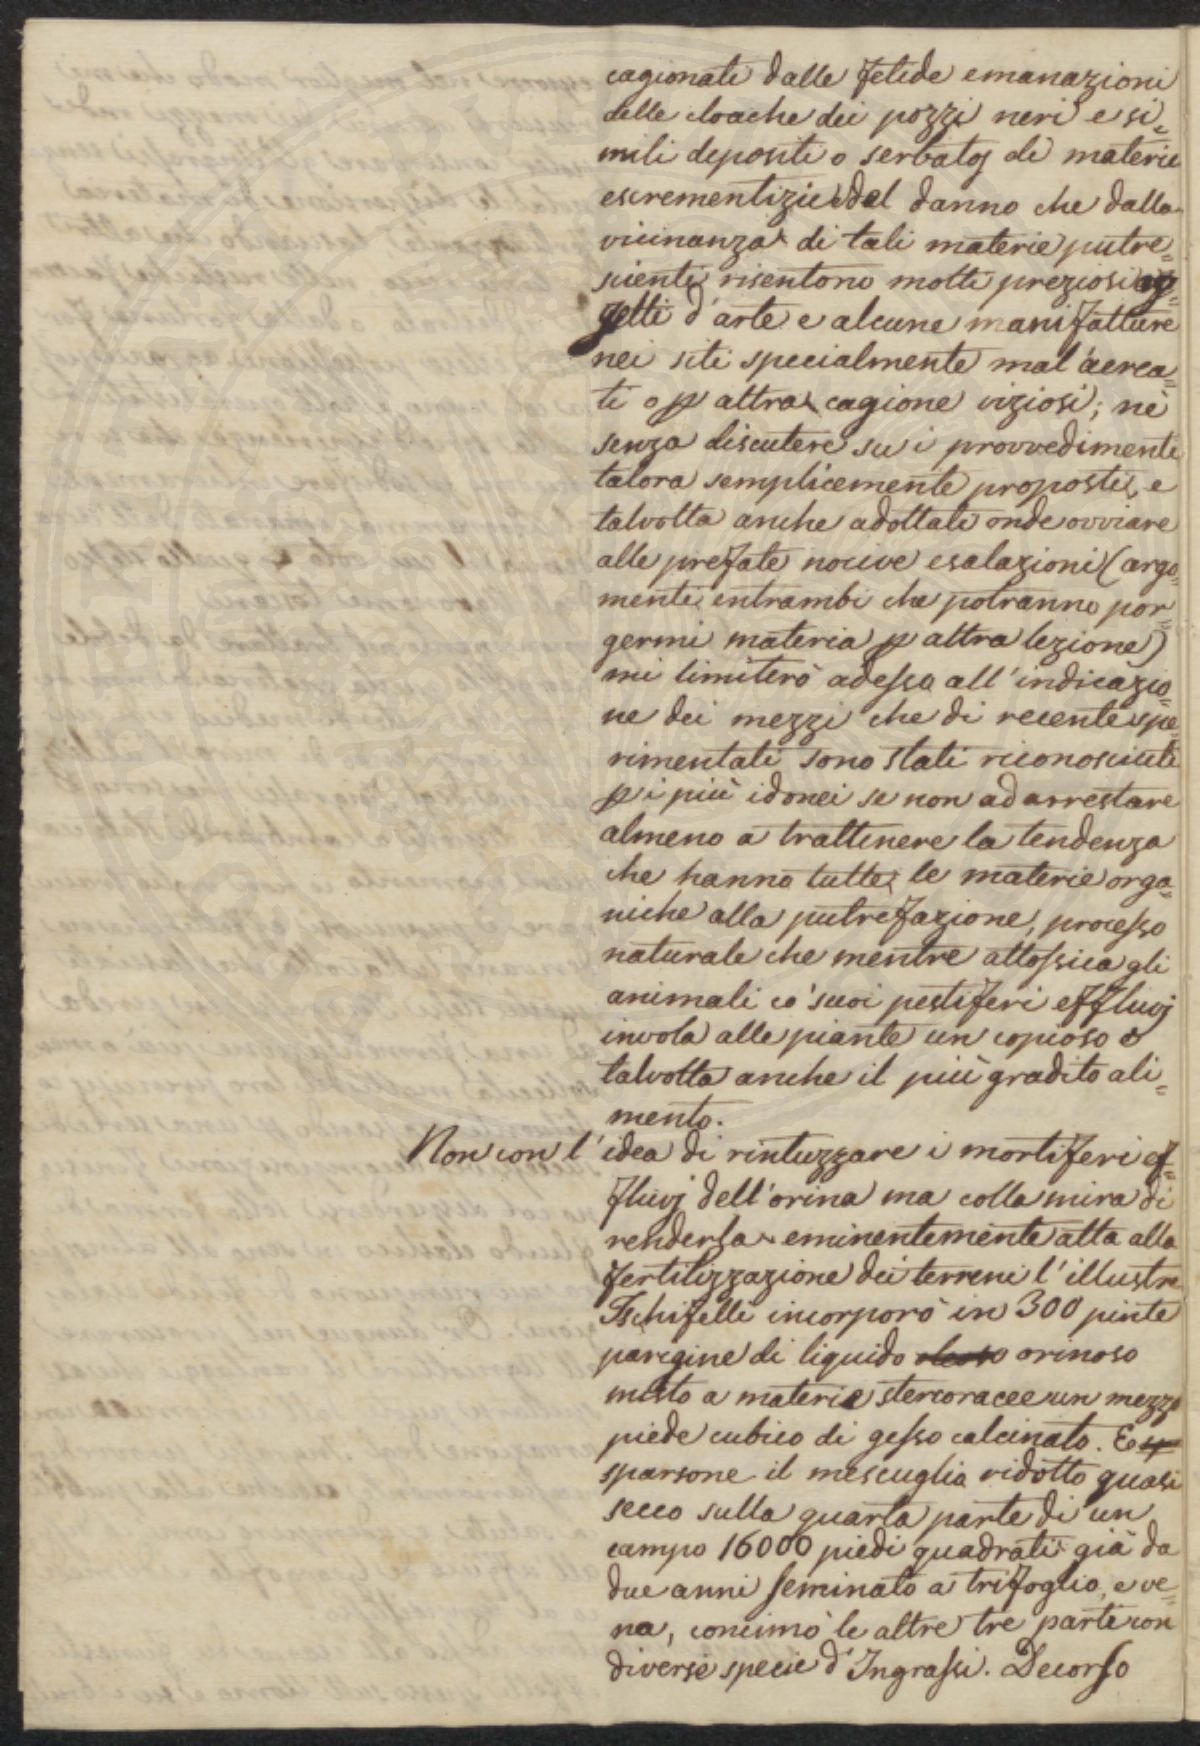 cagionati dalle fetide emanazioni
delle cloache dei pozzi neri e si=
mili depositi o serbatoj di materie
escrementizie del danno che dalla
vicinanza di tali materie putre=
scienti risentono molti preziosi og=
getti d'arte e alcune manifatture
nei siti specialmente mal'aerea=
ti o p altra cagione viziosi; nè
senza discutere su i provvedimenti
talora semplicemente proposti, e
talvolta anche adottati onde ovviare
alle prefate nocive esalazioni (argo=
menti entrambi che potranno por=
germi materia p altra lezione)
mi limiterò adesso all'indicazio=
ne dei mezzi che di recente spe=
rimentati sono stati riconosciuti
p i più idonei se non ad arrestare
almeno a trattenere la tendenza
che hanno tutte le materie orga=
niche alla putrefazione, processo
naturale che mentre attossica gli
animali co' suoi pestiferi effluvj
invola alle piante un copioso e
talvolta anche il più gradito ali=
mento.
Non con l'idea di rintuzzare i mortiferi ef=
fluvj dell'orina ma colla mira di
renderla eminentemente atta alla
fertilizzazione dei terreni l'illustre
Tschifelli incorporò in 300 pinte
parigine di liquido orinoso
misto a materie stercoracee un mezzo
piede cubico di gesso calcinato. E
sparsone il mescuglio ridotto quasi
secco sulla quarta parte di un
campo 16000 piedi quadrati già da
due anni seminato a trifoglio, e ve=
na, concimò le altre tre parti con
diverse specie d'Ingrassi. Decorso